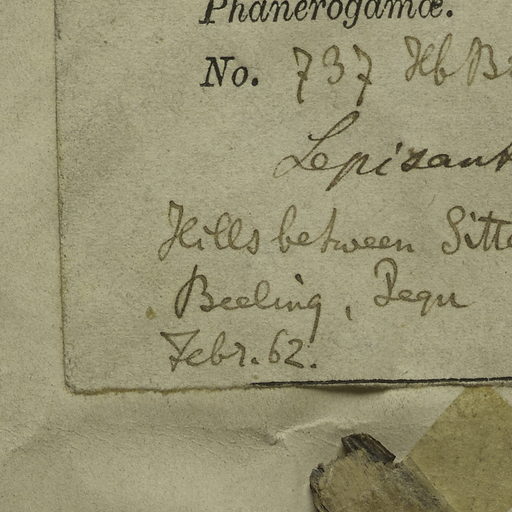 Phanerogamæ.
No. 737 Hb Br
Lepisant
Hills between Sitta
Beeling, Pegu
Febr. 62.